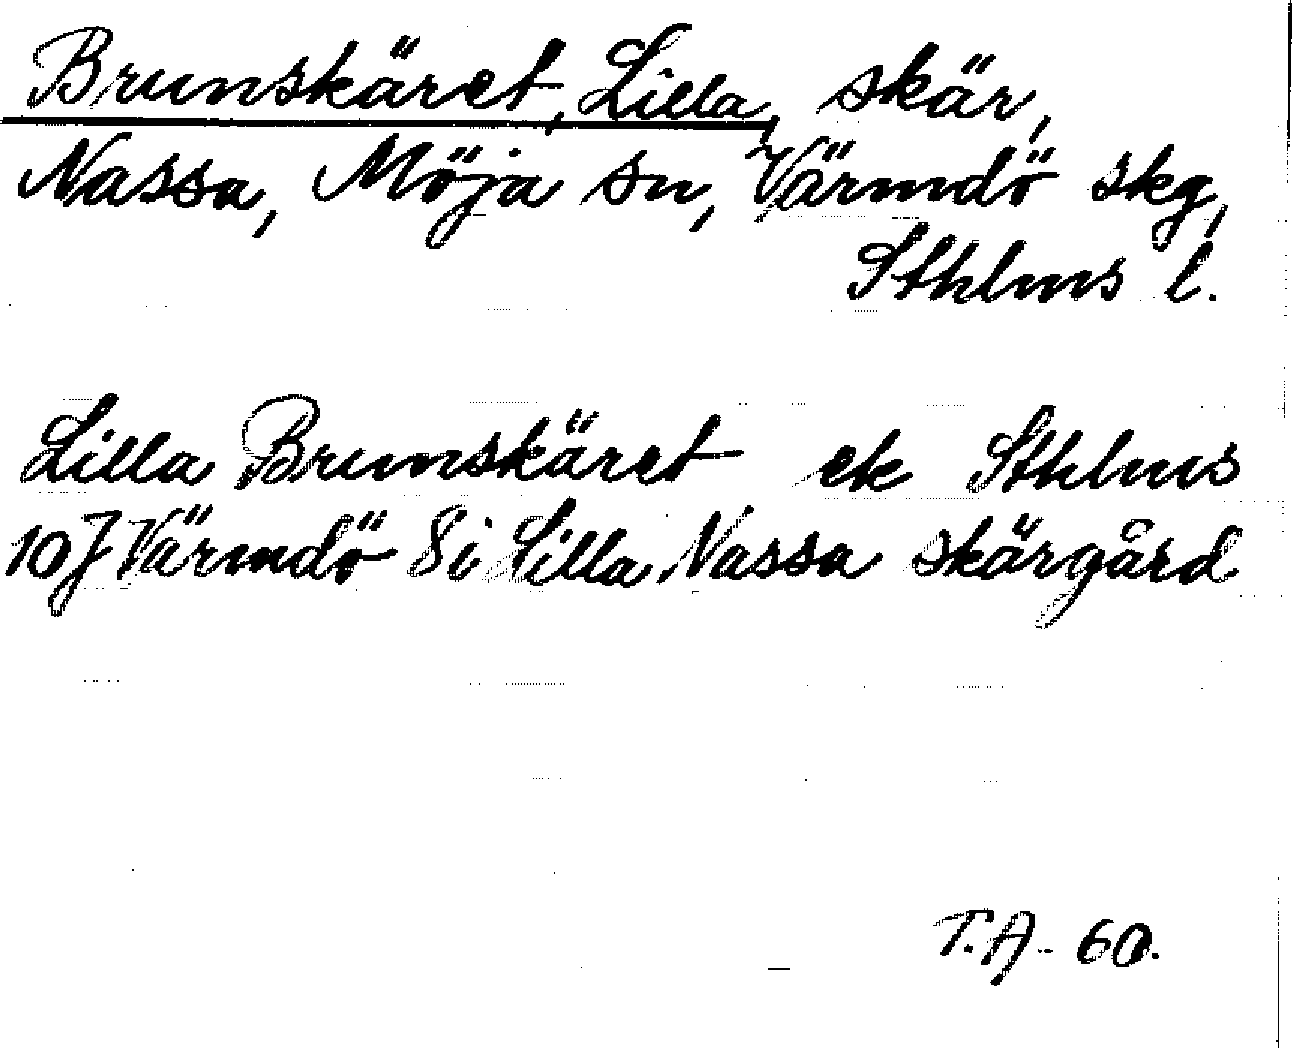 Brunskäret, Lilla, skär,
Nassa, Möja sn, Värmdö skg,
Sthlms l.
Lilla Brunskäret ek Sthlms
10J Värmdö 8i Lilla Nassa skärgård
T.A. 60.